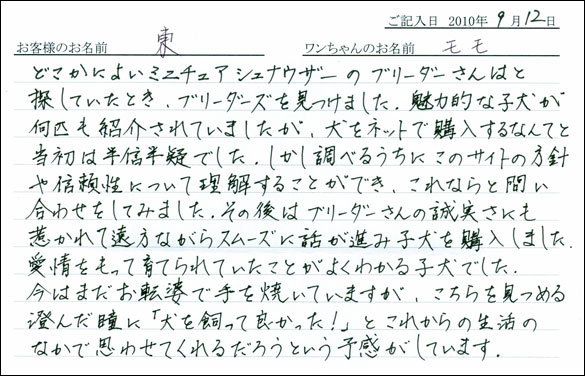 ご記入日 2010年 9月12日
お客様のお名前 東 ワンちゃんのお名前 モモ
どこかによいミニチュアシュナウザーのブリーダーさんはと
探していたとき、ブリーダーズを見つけました。魅力的な子犬が
何匹も紹介されていましたが、犬をネットで購入するなんてと
当初は半信半疑でした。しかし調べるうちにこのサイトの方針
や信頼性について理解することができ、これならと問い
合わせをしてみました。その後はブリーダーさんの誠実さにも
惹かれて遠方ながらスムーズに話が進み子犬を購入しました。
愛情をもって育てられていたことがよくわかる子犬でした。
今はまだお転婆で手を焼いていますが、こちらを見つめる
澄んだ瞳に「犬を飼って良かった!」とこれからの生活の
なかで思わせてくれるだろうという予感がしています。